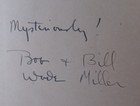 Mysteriously!
Bob + Bill
Wade Miller